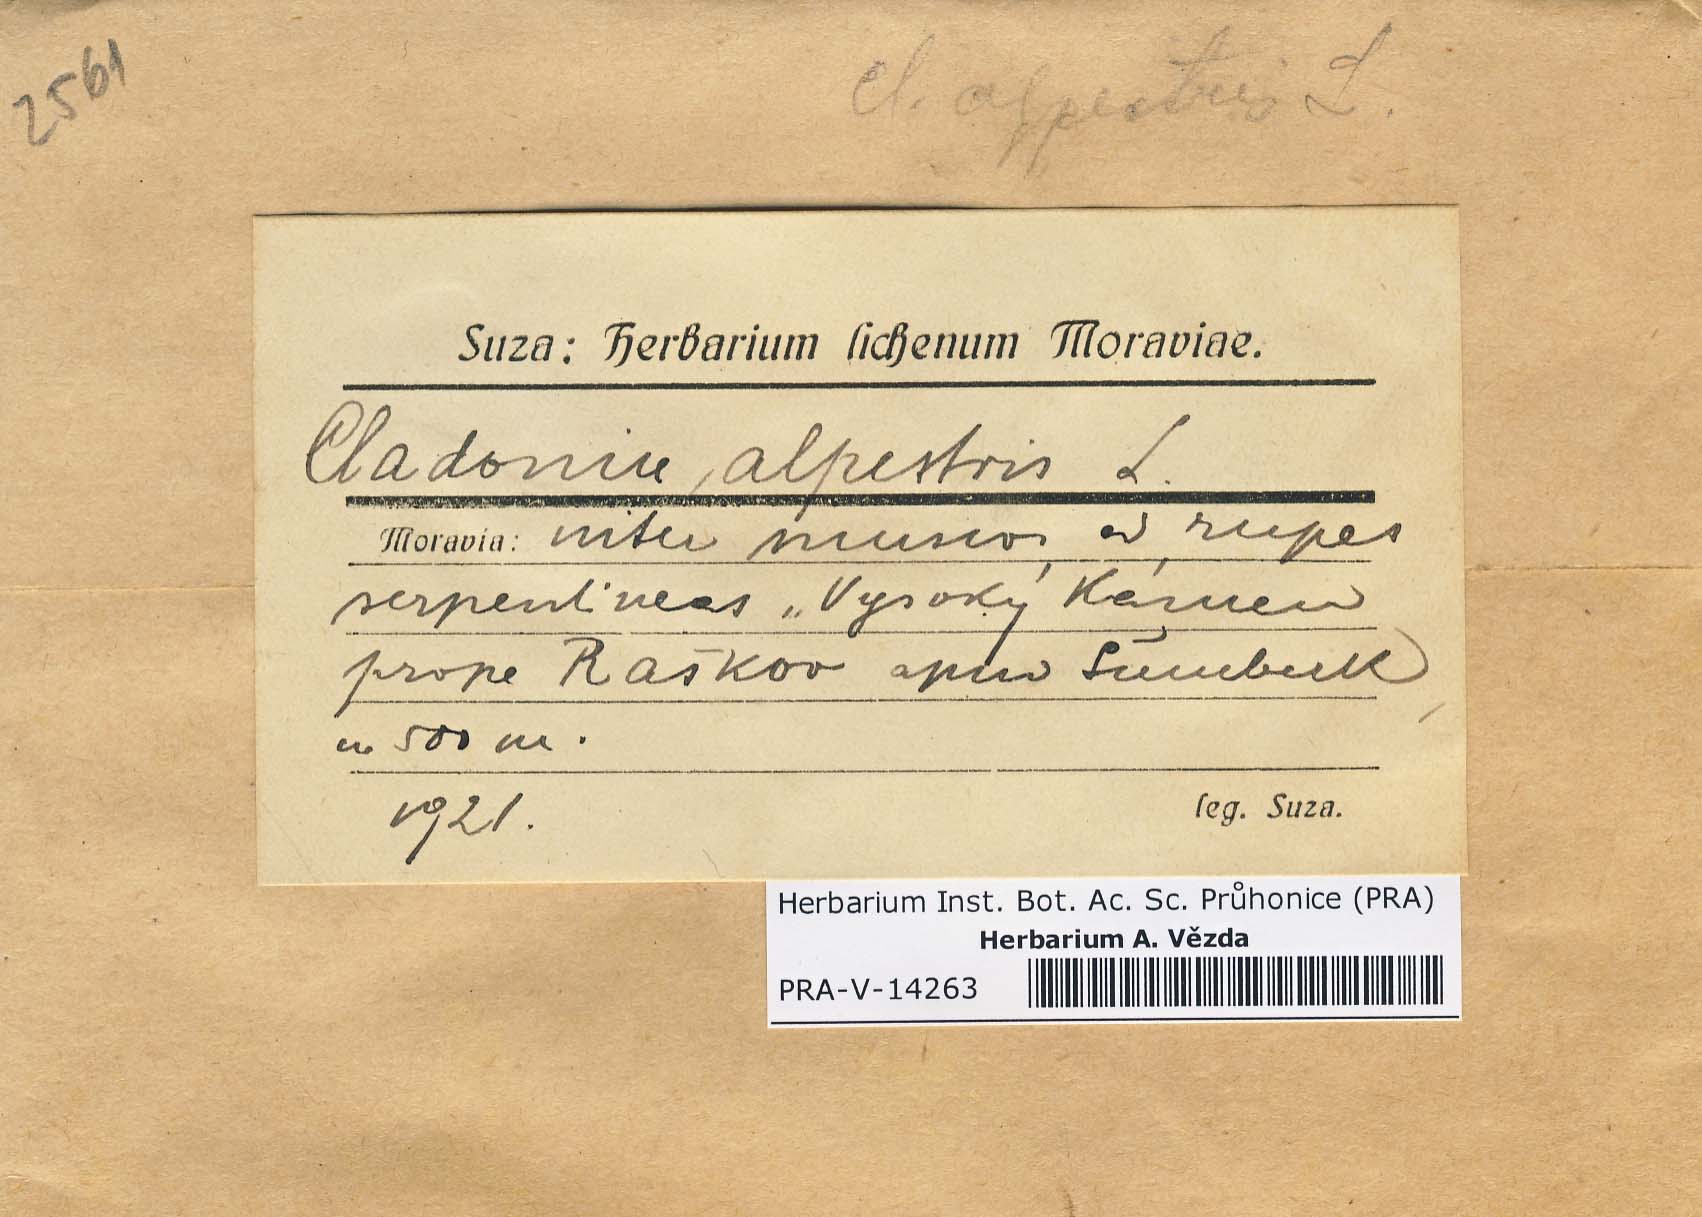 2561
Cl. alpestris L.
Suza: Herbarium lichenum Moraviae.
Cladonia alpestris L.
Moravia: inter muscos ad rupes
serpentineas „Vysoký Kámen
prope Raškov apud Šumberk,
ca 500 m.
1921.
leg. Suza.
Herbarium Inst. Bot. Ac. Sc. Průhonice (PRA)
Herbarium A. Vězda
PRA-V-14263